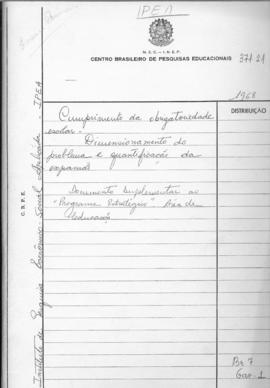 IPEA
M.E.C. – I.N.E.P.
CENTRO BRASILEIRO DE PESQUISAS EDUCACIONAIS
371.21
1968
DISTRIBUIÇÃO
Cumprimento da obrigatoriedade
escolar -
Dimensionamento do
problema e quantificação da
expansão
Documento Suplementar ao
"Programa Estratégico" Área de
Educação
C.B.P.E.
Instituto de Pesquisa Econômico-Social Aplicada - IPEA
Gav. 1